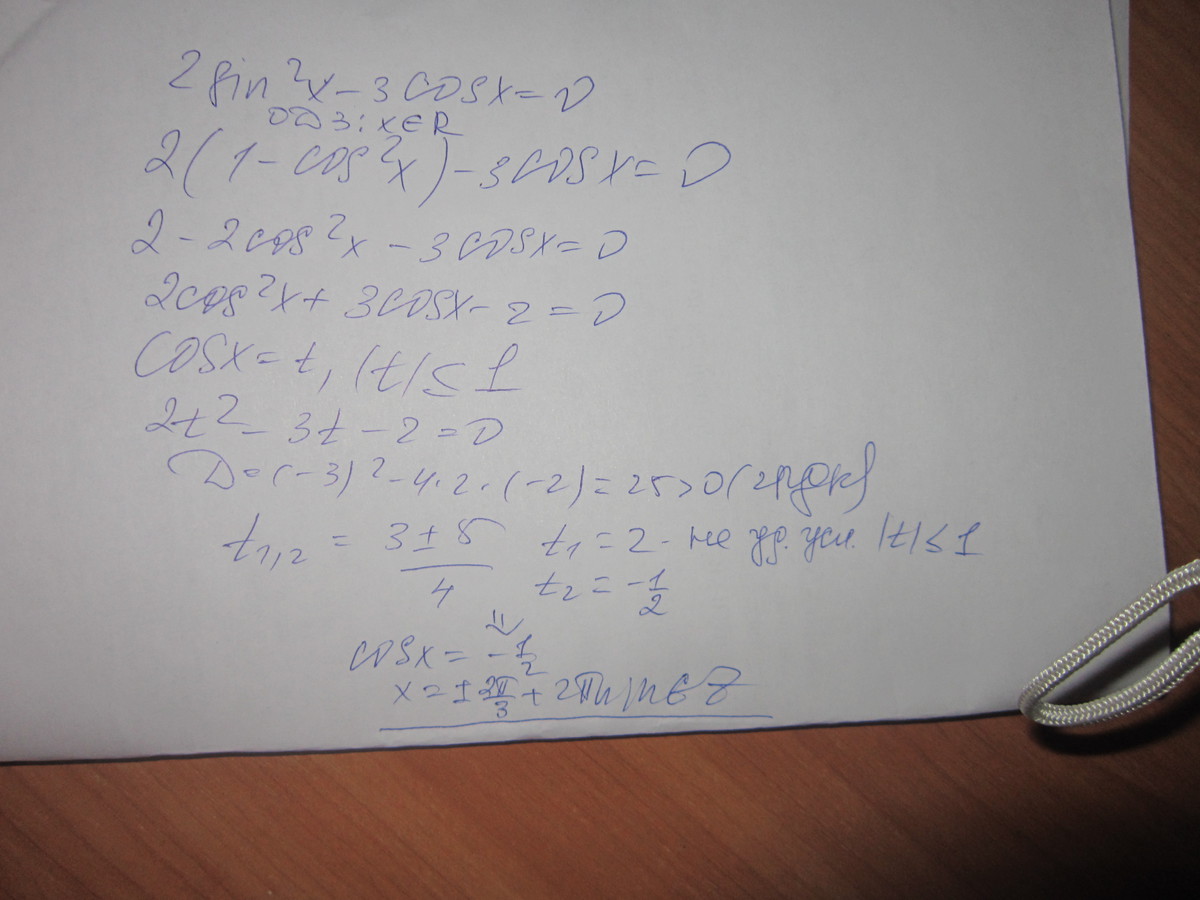 2 sin²x - 3 cosx = 0
ОДЗ: x∈R
2(1 - cos²x) - 3cosx = 0
2 - 2cos²x - 3cosx = 0
2cos²x + 3cosx - 2 = 0
cosx = t, |t| ≤ 1
2t² - 3t - 2 = 0
D = (-3)² - 4·2·(-2) = 25 > 0
t₁,₂ = (3 ± 5)/4 t₁ = 2 - не уд. усл. |t| ≤ 1
t₂ = -1/2
cosx = -1/2
x = ± 2π/3 + 2πn, n∈Z